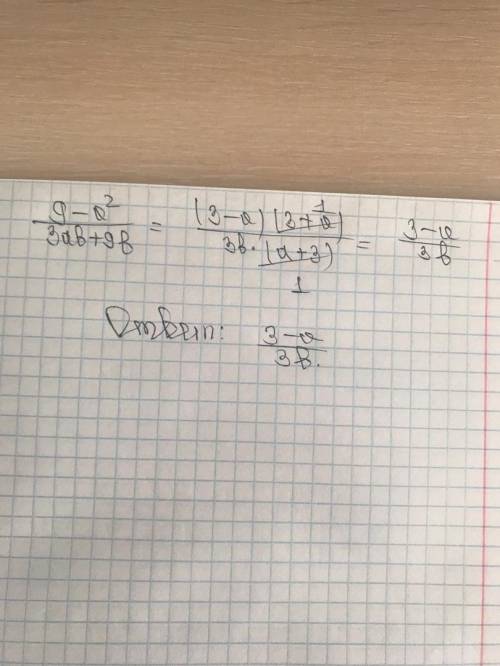 9-a² / 3ab+9b = (3-a)(3+a) 1 / 3b·(a+3) 1 = 3-a / 3b
Ответ: 3-a / 3b.